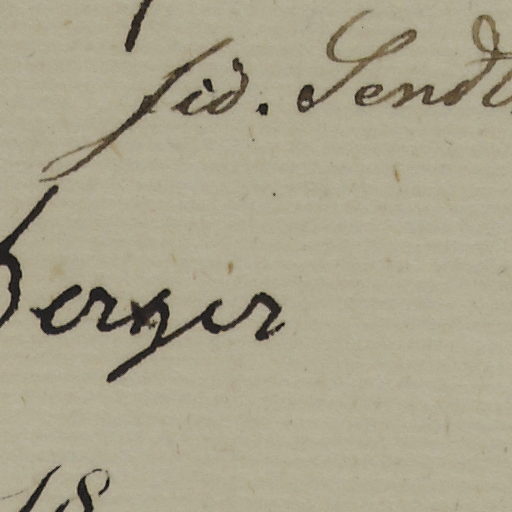 sid. Sendt
Berger
18